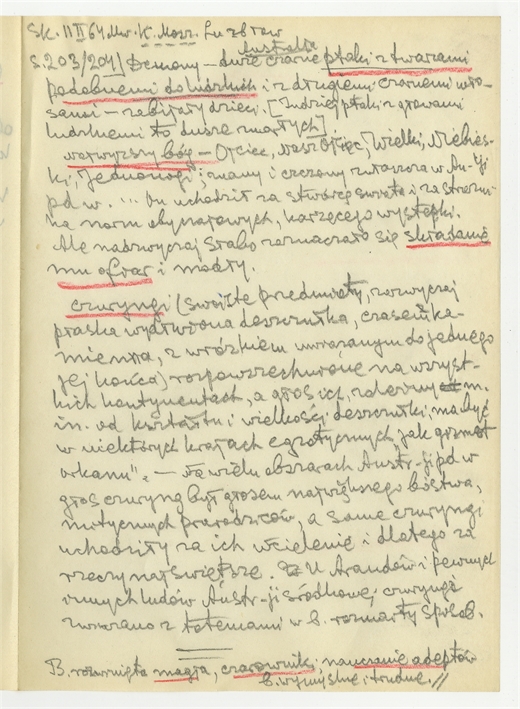 Sk. 11 II 64 Mw. K. Mosz.
Australia
s. 203/204] Demony – duże czarne ptaki z twarzami
podobnemi do ludzkich i z długiemi czarnemi wło-
sami – zabijały dzieci. [Indziej ptaki z głowami
ludzkiemi to dusze zmarłych].
Najwyższy bóg – Ojciec, Nasz Ojciec, Wielki, Niebies-
ki, "Jednonogi"; znany i czczony zwłaszcza w Au-ji
pd w. ... On uchodził za stwórcę świata i za strażni-
ka norm obyczajowych, karzącego występki.
Ale nadzwyczaj słabo zaznaczało się składanie
mu ofiar i modły.
czuryngi (swoiste przedmioty, zazwyczaj
płaska wydłużona deszczułka, czasem ka-
mienna, z uwiązanym do jednego
jej końca) rozpowszechnione na wszyst-
kich kontynentach, a głos ich, zależny m.
in. od kształtu i wielkości deszczułki, ma być
w niektórych krajach egzotycznych, jak grzmot
orkanu". – Na wielu obszarach Austr-ji pd w
głos czuryng był głosem najwyższego bóstwa,
mitycznych prarodziców, a same czuryngi
uchodziły za ich wcielenie i dlatego za
rzeczy najświętsze. U Arandów i pewnych
innych ludów Austr-ji środkowej czuryngi
związano z totemami w b. rozmaity sposób.
B. rozwinięta magja, czarowniki, nauczanie adeptów
b. wymyślne i trudne. //